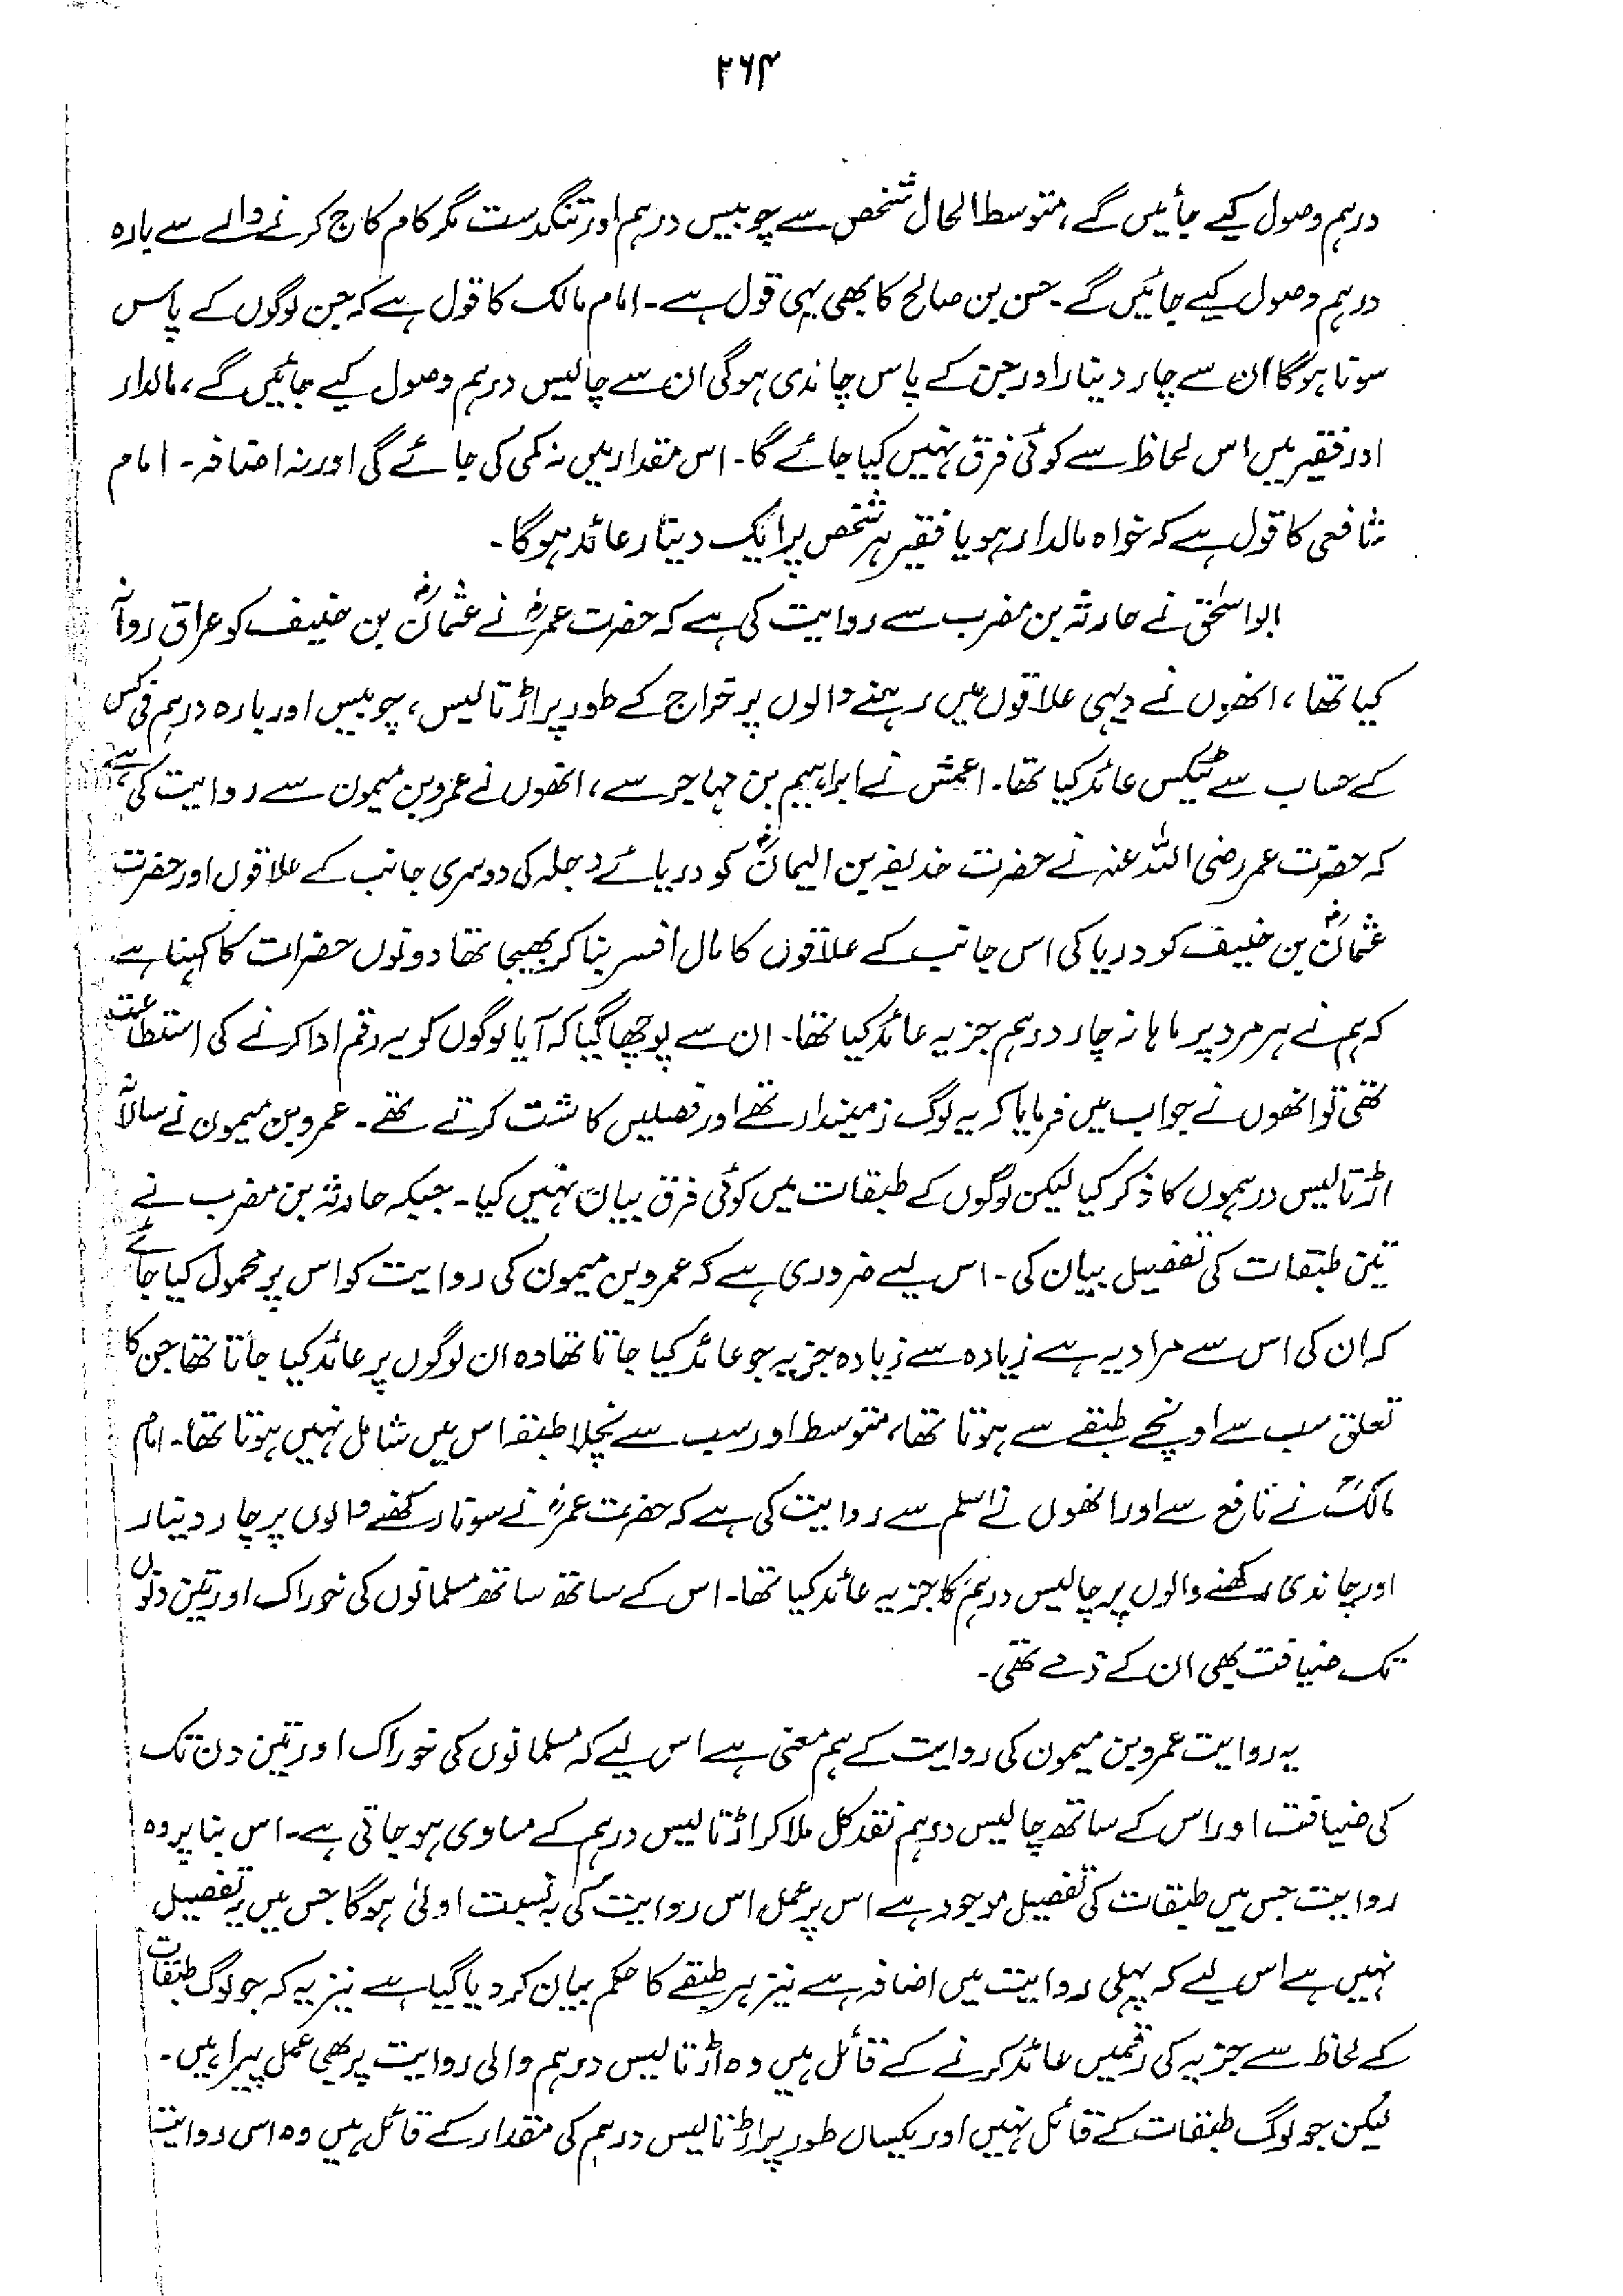 ۲۶۴
درہم وصول کیے جائیں گے، متوسط الحال شخص سے چوبیس درہم اور تنگدست مگر کام کاج کرنے والے سے بارہ
درہم وصول کیے جائیں گے۔ حسن بن صالح کا بھی یہی قول ہے۔ امام مالک کا قول ہے کہ جن لوگوں کے پاس
سونا ہوگا ان سے چار دینار اور جن کے پاس چاندی ہوگی ان سے چالیس درہم وصول کیے جائیں گے، مالدار
اور فقیر میں اس لحاظ سے کوئی فرق نہیں کیا جائے گا۔ اس مقدار میں نہ کمی کی جائے گی اور نہ اضافہ۔ امام
شافعی کا قول ہے کہ خواہ مالدار ہو یا فقیر ہر شخص پر ایک دینار عائد ہوگا۔
ابواسحٰق نے حارثہ بن مضرب سے روایت کی ہے کہ حضرت عمرؓ نے عثمانؓ بن حنیف کو عراق روانہ
کیا تھا، انھوں نے دیہی علاقوں میں رہنے والوں پر خراج کے طور پر اڑتالیس، چوبیس اور بارہ درہم فی کس
کے حساب سے ٹیکس عائد کیا تھا۔ اعمش نے ابراہیم بن مہاجر سے، انھوں نے عمرو بن میمون سے روایت کی ہے
کہ حضرت عمر رضی اللہ عنہ نے حضرت حذیفہ بن الیمانؓ کو دریائے دجلہ کی دوسری جانب کے علاقوں اور حضرت
عثمانؓ بن حنیف کو دریا کی اس جانب کے علاقوں کا مال افسر بنا کر بھیجا تھا دونوں حضرات کا کہنا ہے
کہ ہم نے ہر مرد پر ماہانہ چار درہم جزیہ عائد کیا تھا۔ ان سے پوچھا گیا کہ آیا لوگوں کو یہ رقم ادا کرنے کی استطاعت
تھی تو انھوں نے جواب میں فرمایا کہ یہ لوگ زمیندار تھے اور فصلیں کاشت کرتے تھے۔ عمرو بن میمون نے سالانہ
اڑتالیس درہموں کا ذکر کیا لیکن لوگوں کے طبقات میں کوئی فرق بیان نہیں کیا۔ جبکہ حارثہ بن مضرب نے
تین طبقات کی تفصیل بیان کی۔ اس لیے ضروری ہے کہ عمرو بن میمون کی روایت کو اس پر محمول کیا جائے
کہ ان کی اس سے مراد یہ ہے زیادہ سے زیادہ جزیہ جو عائد کیا جاتا تھا وہ ان لوگوں پر عائد کیا جاتا تھا جن کا
تعلق سب سے اونچے طبقے سے ہوتا تھا، متوسط اور سب سے نچلا طبقہ اس میں شامل نہیں ہوتا تھا۔ امام
مالکؒ نے نافع سے اور انھوں نے اسلم سے روایت کی ہے کہ حضرت عمرؓ نے سونا رکھنے والوں پر چار دینار
اور چاندی رکھنے والوں پر چالیس درہم کا جزیہ عائد کیا تھا۔ اس کے ساتھ ساتھ مسلمانوں کی خوراک اور تین دنوں
تک ضیافت بھی ان کے ذمے تھی۔
یہ روایت عمرو بن میمون کی روایت کے ہم معنی ہے اس لیے کہ مسلمانوں کی خوراک اور تین دن تک
کی ضیافت اور اس کے ساتھ چالیس درہم نقد کل ملا کر اڑتالیس درہم کے مساوی ہو جاتی ہے۔ اس بنا پر وہ
روایت جس میں طبقات کی تفصیل موجود ہے اس پر عمل اس روایت کی بہ نسبت اولیٰ ہوگا جس میں یہ تفصیل
نہیں ہے اس لیے کہ پہلی روایت میں اضافہ ہے نیز ہر طبقے کا حکم بیان کر دیا گیا ہے نیز یہ کہ جو لوگ طبقات
کے لحاظ سے جزیہ کی رقمیں عائد کرنے کے قائل ہیں وہ اڑتالیس درہم والی روایت پر بھی عمل پیرا ہیں۔
لیکن جو لوگ طبقات کے قائل نہیں اور یکساں طور پر اڑتالیس درہم کی مقدار کے قائل ہیں وہ اس روایت